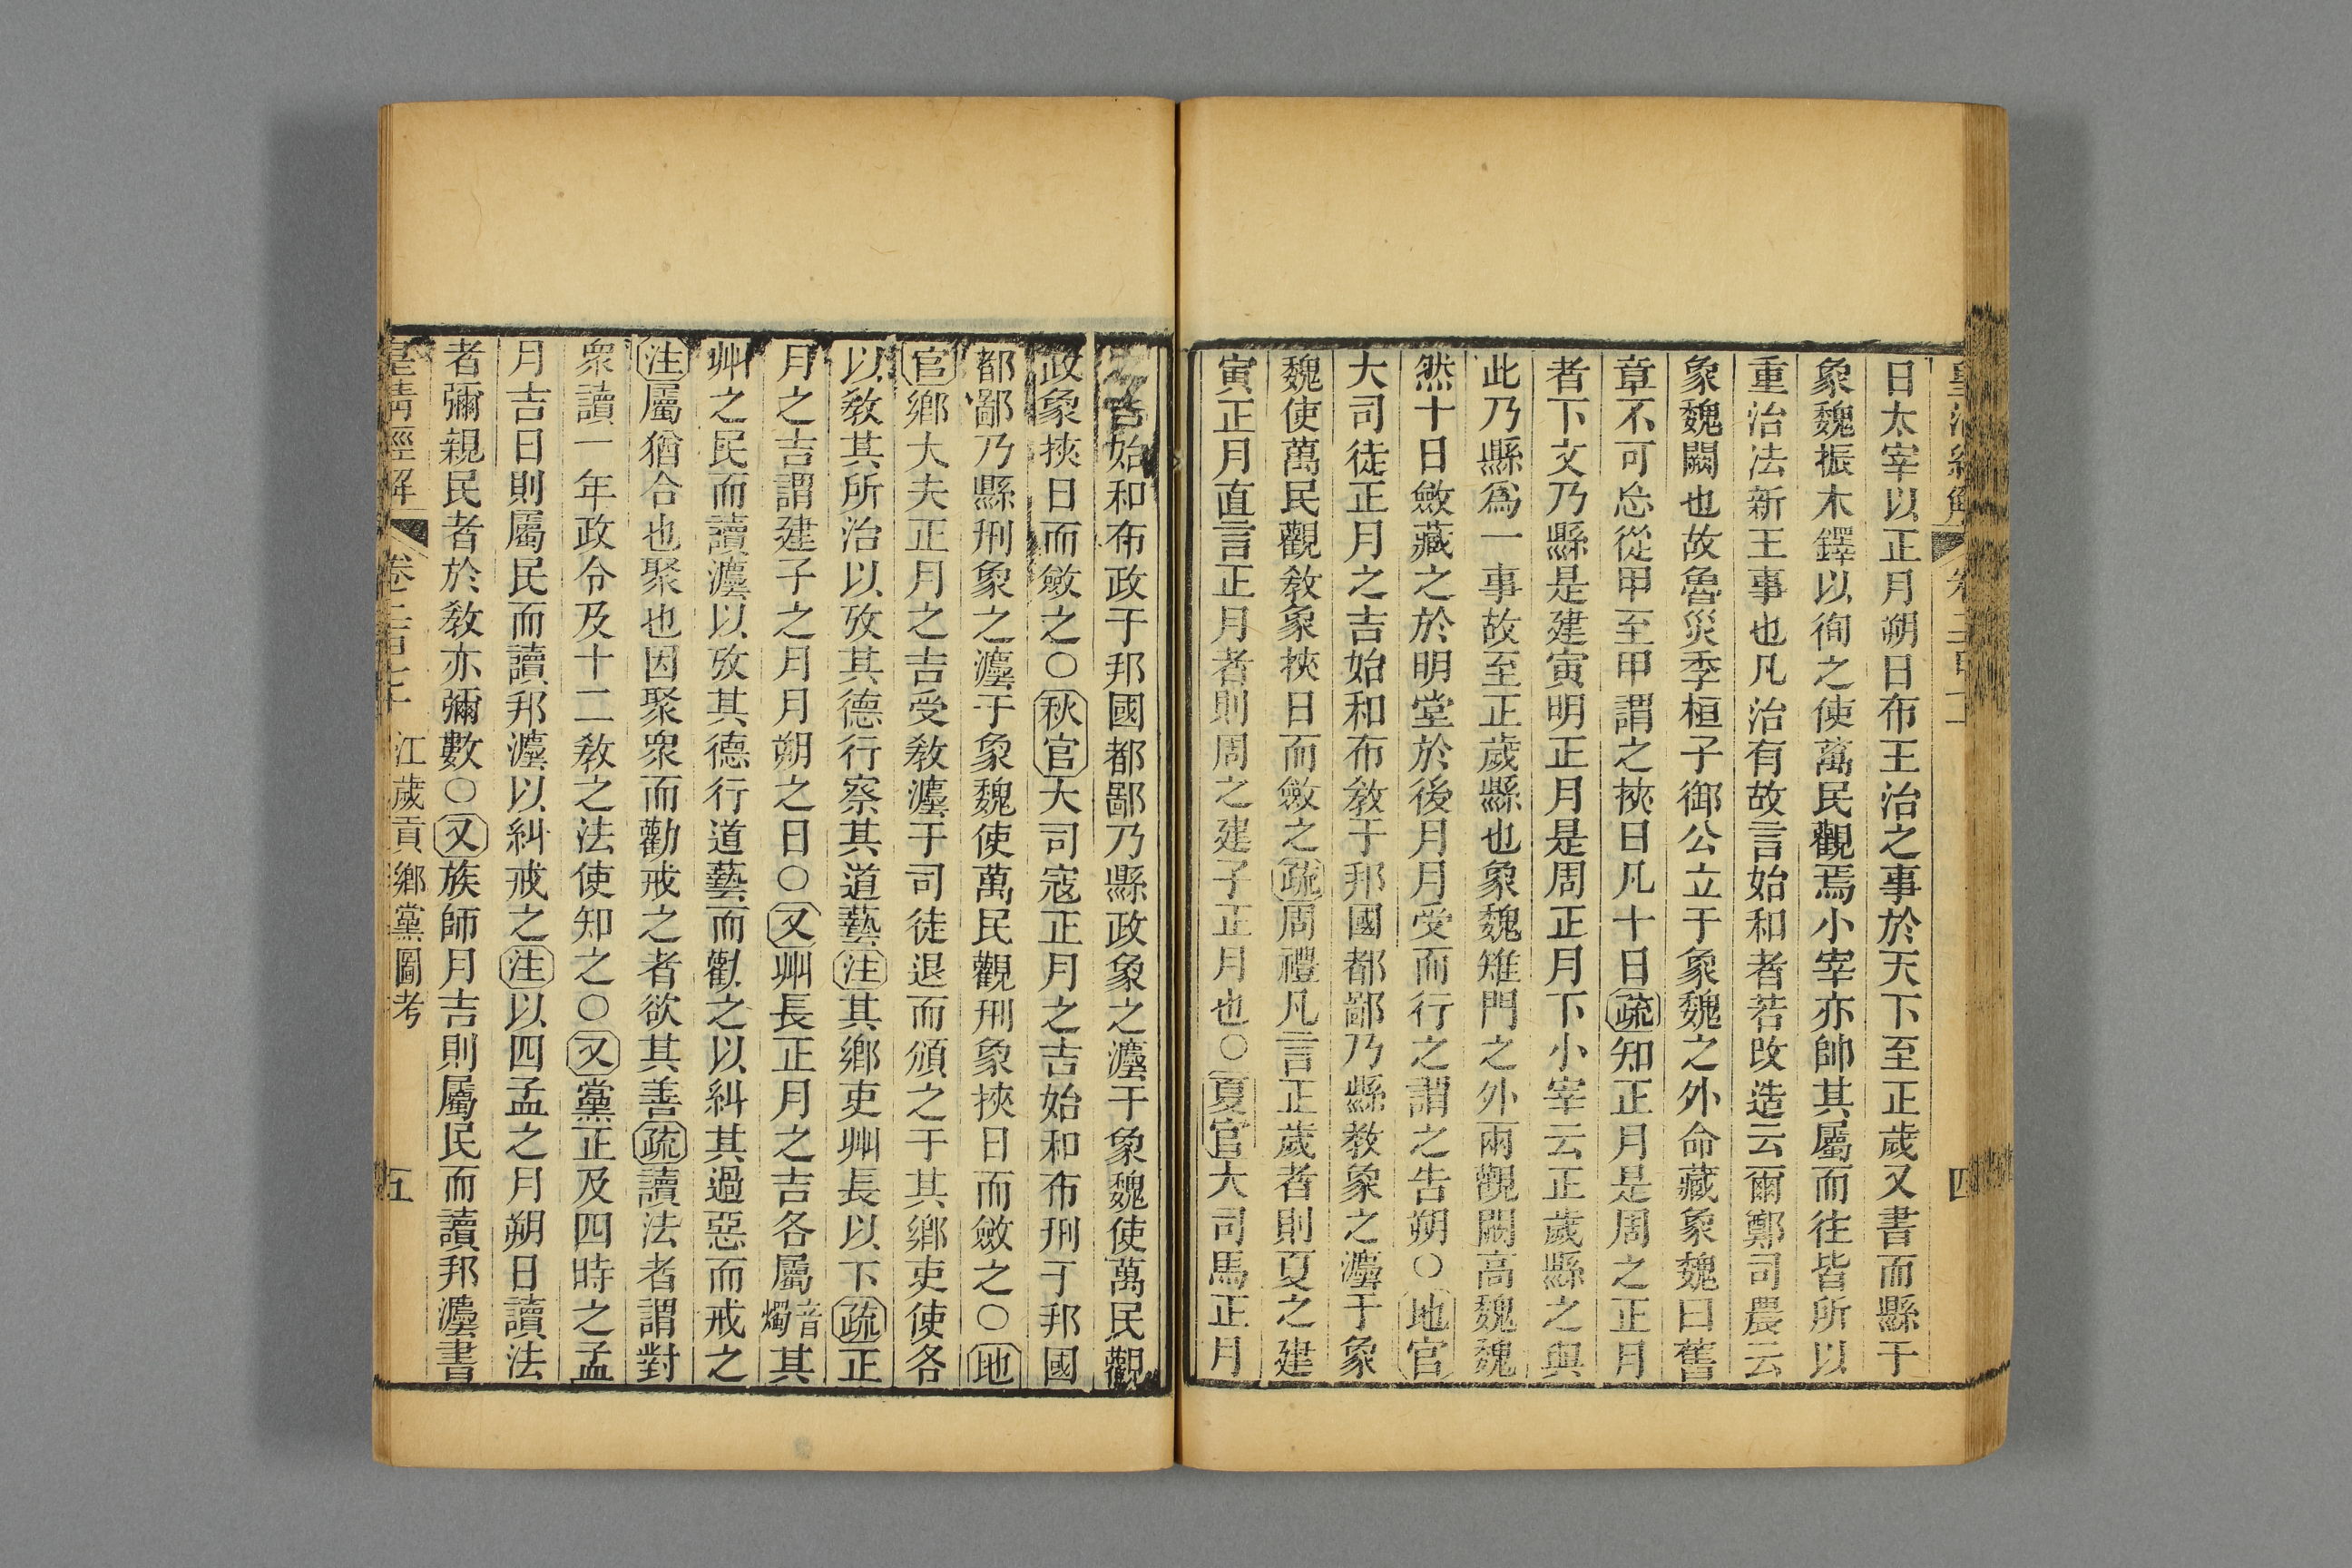 日太宰以正月朔日布王治之事於天下至正歲又書而縣于
象魏振木鐸以徇之使萬民觀焉小宰亦帥其屬而往皆所以
重治法新王事也凡治有故言始和者若改造云爾鄭司農云
象魏闕也故魯災季桓子御公立于象魏之外命藏象魏曰舊
章不可忘從甲至甲謂之挾日凡十日疏知正月是周之正月
者下文乃縣是建寅明正月是周正月下小宰云正歲縣之與
此乃縣爲一事故至正歲縣也象魏雉門之外兩觀闕高魏魏
然十日斂藏之於明堂於後月月受而行之謂之告朔○地官
大司徒正月之吉始和布敎于邦國都鄙乃縣敎象之灋于象
魏使萬民觀敎象挾日而斂之疏周禮凡言正歲者則夏之建
寅正月直言正月者則周之建子正月也○夏官大司馬正月
吉始和布政于邦國都鄙乃縣政象之灋于象魏使萬民觀
政象挾日而斂之○秋官大司寇正月之吉始和布刑于邦國
都鄙乃縣刑象之灋于象魏使萬民觀刑象挾日而斂之○地
官鄉大夫正月之吉受敎灋于司徒退而頒之于其鄉吏使各
以敎其所治以攷其德行察其道藝注其鄉吏州長以下疏正
月之吉謂建子之月月朔之日○又州長正月之吉各屬音燭其
州之民而讀灋以攷其德行道藝而勸之以糾其過惡而戒之
注屬猶合也聚也因聚衆而勸戒之者欲其善疏讀法者謂對
衆讀一年政令及十二敎之法使知之○又黨正及四時之孟
月吉日則屬民而讀邦灋以糾戒之注以四孟之月朔日讀法
者彌親民者於敎亦彌數○又族師月吉則屬民而讀邦灋書
皇清經解 卷二百七十 江歲貢鄉黨圖考 五